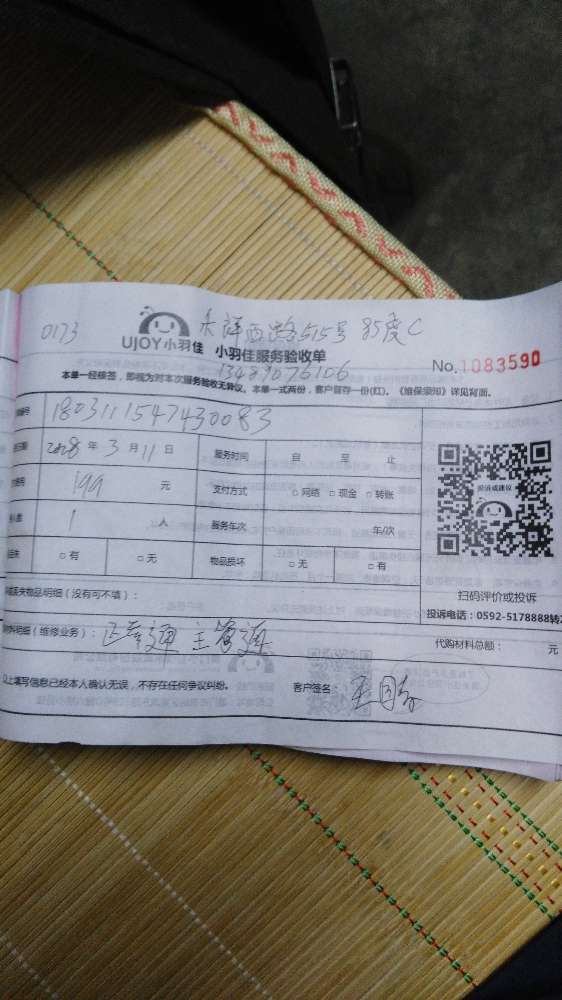 0173 禾祥西路515号 85度C
UJOY小羽佳 小羽佳服务验收单
13489076106
No.1083590
本单一经核签，即视为对本次服务验收无异议。本单一式两份，客户留存一份(红)。《维保须知》详见背面。
编号 1803111547430083
日期 2018 年 3 月 11 日 服务时间 自 至 止
费用 199 元 支付方式 □ 网络 □ 现金 □ 转账
人数 1 人 服务年次 年/次
丢失 □ 有 □ 无 物品损坏 □ 无 □ 有
投诉或建议
扫码评价或投诉
投诉电话：0592-5178888转2
丢失物品明细（没有可不填）：
明细（维修业务）： 主管通
代购材料总额： 元
以上填写信息已经本人确认无误，不存在任何争议纠纷。 客户签名：